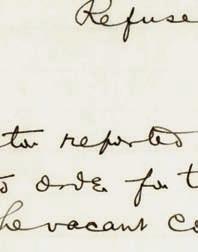 Refuse
tor reported
order for t
the vacant Co